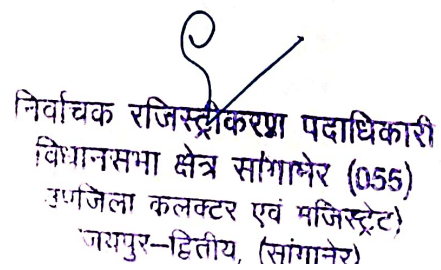 निर्वाचक रजिस्ट्रीकरण पदाधिकारी
विधानसभा क्षेत्र सांगानेर (055)
उपजिला कलक्टर एवं मजिस्ट्रेट)
जयपुर-द्वितीय, (सांगानेर)